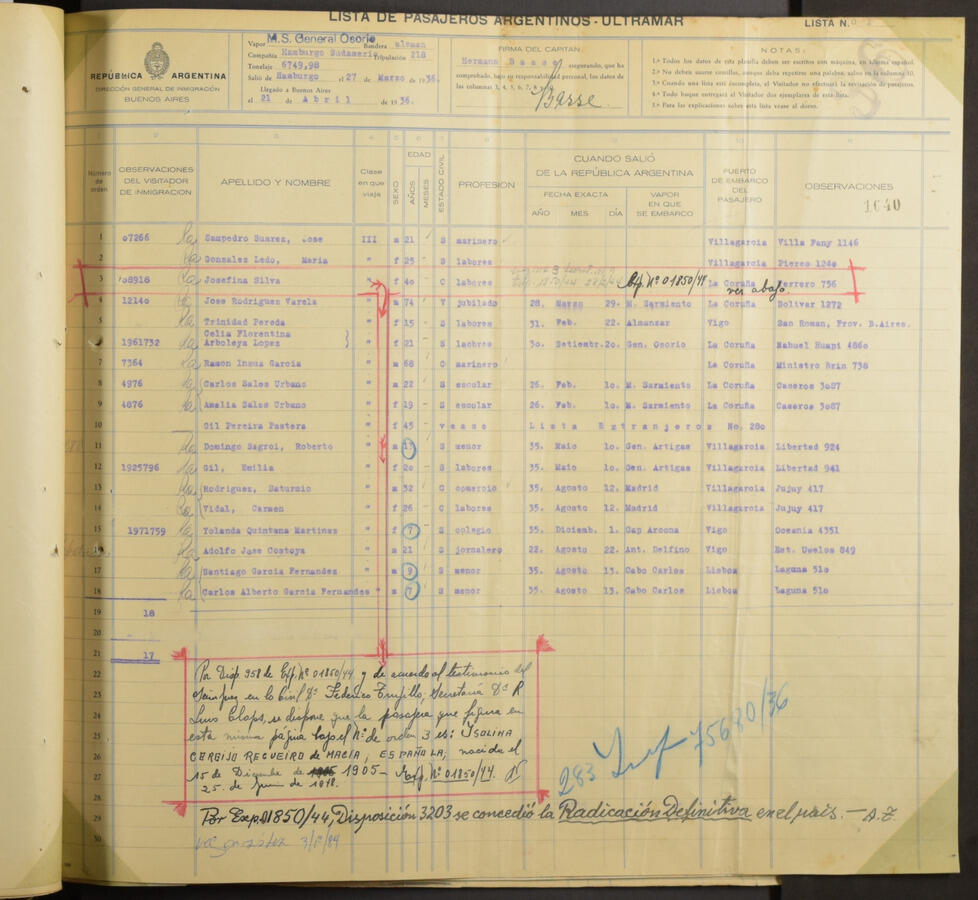 LISTA DE PASAJEROS ARGENTINOS - ULTRAMAR
LISTA N.o
REPUBLICA ARGENTINA
DIRECCIÓN GENERAL DE INMIGRACIÓN
BUENOS AIRES
Vapor M.S. General Osorio Bandera aleman
Compañía Hamburgo Sudameric. Tripulación 218
Tonelaje 6749,98
Salió de Hamburgo el 27 de Marzo de 1936.
Llegado a Buenos Aires
el 21 de Abril de 1936.
FIRMA DEL CAPITAN:
Hermann Basse, asegurando, que ha
comprobado, bajo su responsabilidad personal, los datos de
las columnas 3, 4, 5, 6, 7,
Basse.
NOTAS:
1.ª Todos los datos de esta planilla deben ser escritos con máquina, en idioma español.
2.ª No deben usarse comillas, aunque deba repetirse una palabra, salvo en la columna 10.
3.ª Cuando una lista esté incompleta, el Visitador no efectuará la revisación de pasajeros.
4.ª Todo buque entregará al Visitador dos ejemplares de esta lista.
5.ª Para las explicaciones sobre esta lista véase al dorso.
Número de orden
OBSERVACIONES DEL VISITADOR DE INMIGRACION
APELLIDO Y NOMBRE
Clase en que viaja
SEXO
EDAD
AÑOS
MESES
ESTADO CIVIL
PROFESION
CUANDO SALIÓ DE LA REPUBLICA ARGENTINA
FECHA EXACTA
AÑO MES DÍA
VAPOR EN QUE SE EMBARCO
PUERTO DE EMBARCO DEL PASAJERO
OBSERVACIONES
1640
1 07266 Sampedro Suarez, Jose III m 21 S marinero Villagarcia Villa Fany 1146
2 Gonzalez Ledo, Maria " f 25 - S labores Villagarcia Pieres 1240
3 08916 Josefina Silva " f 40 - C labores Exp. Nº 01850/44 La Coruña Ferrero 736
ver abajo.
4 12140 Jose Rodriguez Varela " m 74 V jubilado 28. Marzo 29. M. Sarmiento La Coruña Bolivar 1272
5 Trinidad Pereda " f 15 - S labores 31. Feb. 22. Almanzar Vigo San Roman, Prov. B.Aires.
Celia Florentina
6 1961732 Arboleya Lopez } " f 21 S labores 30. Setiembr. 20. Gen. Osorio La Coruña Nahuel Huapi 4860
7 7364 Ramon Insua Garcia " m 68 C marinero La Coruña Ministro Brin 738
8 4976 Carlos Sales Urbano " m 22 S escolar 26. Feb. 10. M. Sarmiento La Coruña Caseros 3087
9 4876 Amalia Sales Urbano " f 19 - S escolar 26. Feb. 10. M. Sarmiento La Coruña Caseros 3087
10 Gil Pereira Pastora " f 45 - vease Lista Extranjeros No. 280
11 Domingo Sagroi, Roberto " m S menor 35. Maio 10. Gen. Artigas Villagarcia Libertad 924
12 1925796 Gil, Emilia " f 20 - S labores 35. Maio 10. Gen. Artigas Villagarcia Libertad 941
13 Rodriguez, Saturnio " m 32 C comercio 35. Agosto 12. Madrid Villagarcia Jujuy 417
14 Vidal, Carmen " f 26 C labores 35. Agosto 12. Madrid Villagarcia Jujuy 417
15 1971759 Yolanda Quintana Martinez " f 7 - S colegio 35. Diciemb. 1. Cap Arcona Vigo Oceania 4351
16 Adolfo Jose Costoya " m 21 S jornalero 22. Agosto 22. Ant. Delfino Vigo Est. Uwelos 849
17 Santiago Garcia Fernandez " m 9 - S menor 35. Agosto 13. Cabo Carlos Lisboa Laguna 510
18 Carlos Alberto Garcia Fernandes " m 7 S menor 35. Agosto 13. Cabo Carlos Lisboa Laguna 510
19 18
20
21 17
22 Por Disp. 958 de Exp. Nº 01850/44 y de acuerdo al testimonio del
23 Señor Juez en lo Civil Dr. Federico Trujillo, Secretaría Dr. R
24 Luis Claps, se dispone que la pasajera que figura en
25 esta misma página bajo el Nº de orden 3 es: ISOLINA
26 CERGIJO REGUEIRO de MACÍA, ESPAÑOLA, nacida el
27 15 de Diciembre de 1905 - Exp. Nº 01850/44.
25. de Junio de 1948.
28
283 Inf 75680/36
29 Por Exp. 01850/44, Disposición 3203 se concedió la Radicación Definitiva en el país. - A.Z.
30